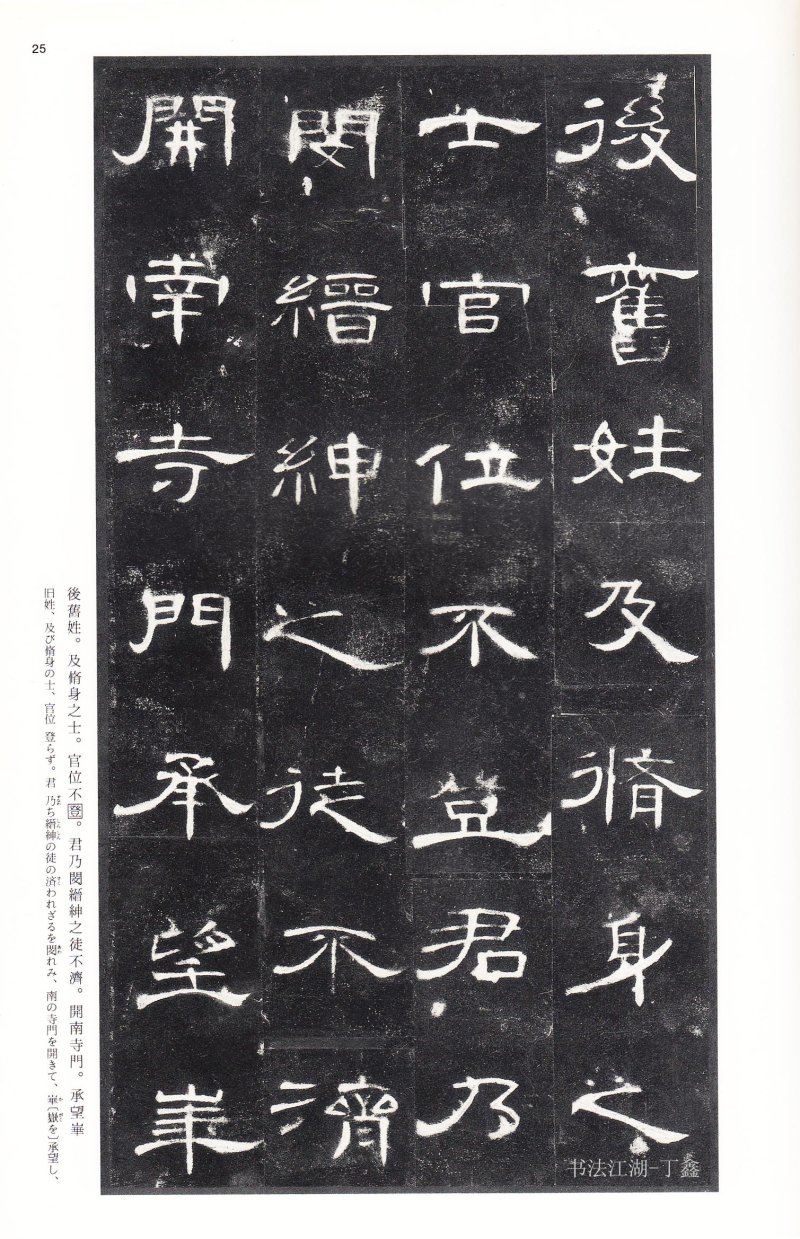 25
後舊姓及脩身之
士官位不登君乃
閔縉紳之徒不濟
開南寺門承望崋
後舊姓。及脩身之士。官位不登。君乃閔縉紳之徒不濟。開南寺門。承望崋
旧姓、及び脩身の士、官位 登らず。君 乃ち縉紳の徒の済われざるを閔れみ、南の寺門を開きて、崋〔嶽を〕承望し、
书法江湖-丁鑫